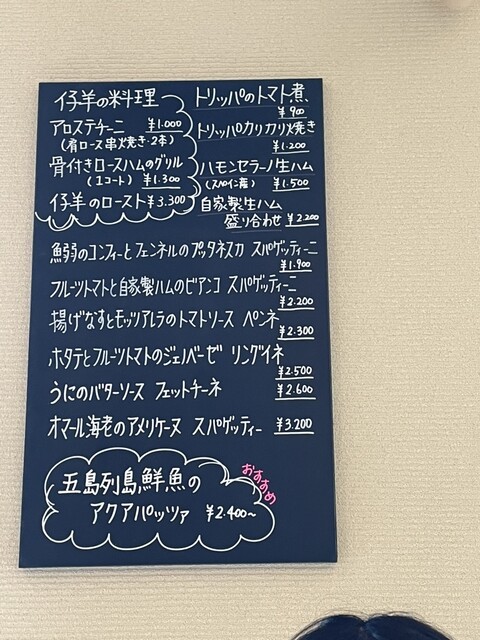 仔羊の料理
アロステチーニ ¥1.000
(肩ロース串焼き・2本)
骨付きロースハムのグリル
(1コート) ¥1.300
仔羊のロースト ¥3.300
トリッパのトマト煮
¥900
トリッパカリカリ焼き
¥1.200
ハモンセラーノ生ハム
(スペイン産) ¥1.500
自家製生ハム
盛り合わせ ¥2.200
鰯のコンフィーとフェンネルのプッタネスカ スパゲッティーニ
¥1.900
フルーツトマトと自家製ハムのビアンコ スパゲッティーニ
¥2.200
揚げなすとモッツアレラのトマトソース ペンネ
¥2.300
ホタテとフルーツトマトのジェノベーゼ リングイネ
¥2.500
うにのバターソース フェットチーネ ¥2.600
オマール海老のアメリケーヌ スパゲッティー ¥3.200
おすすめ
五島列島鮮魚の
アクアパッツァ ¥2.400~